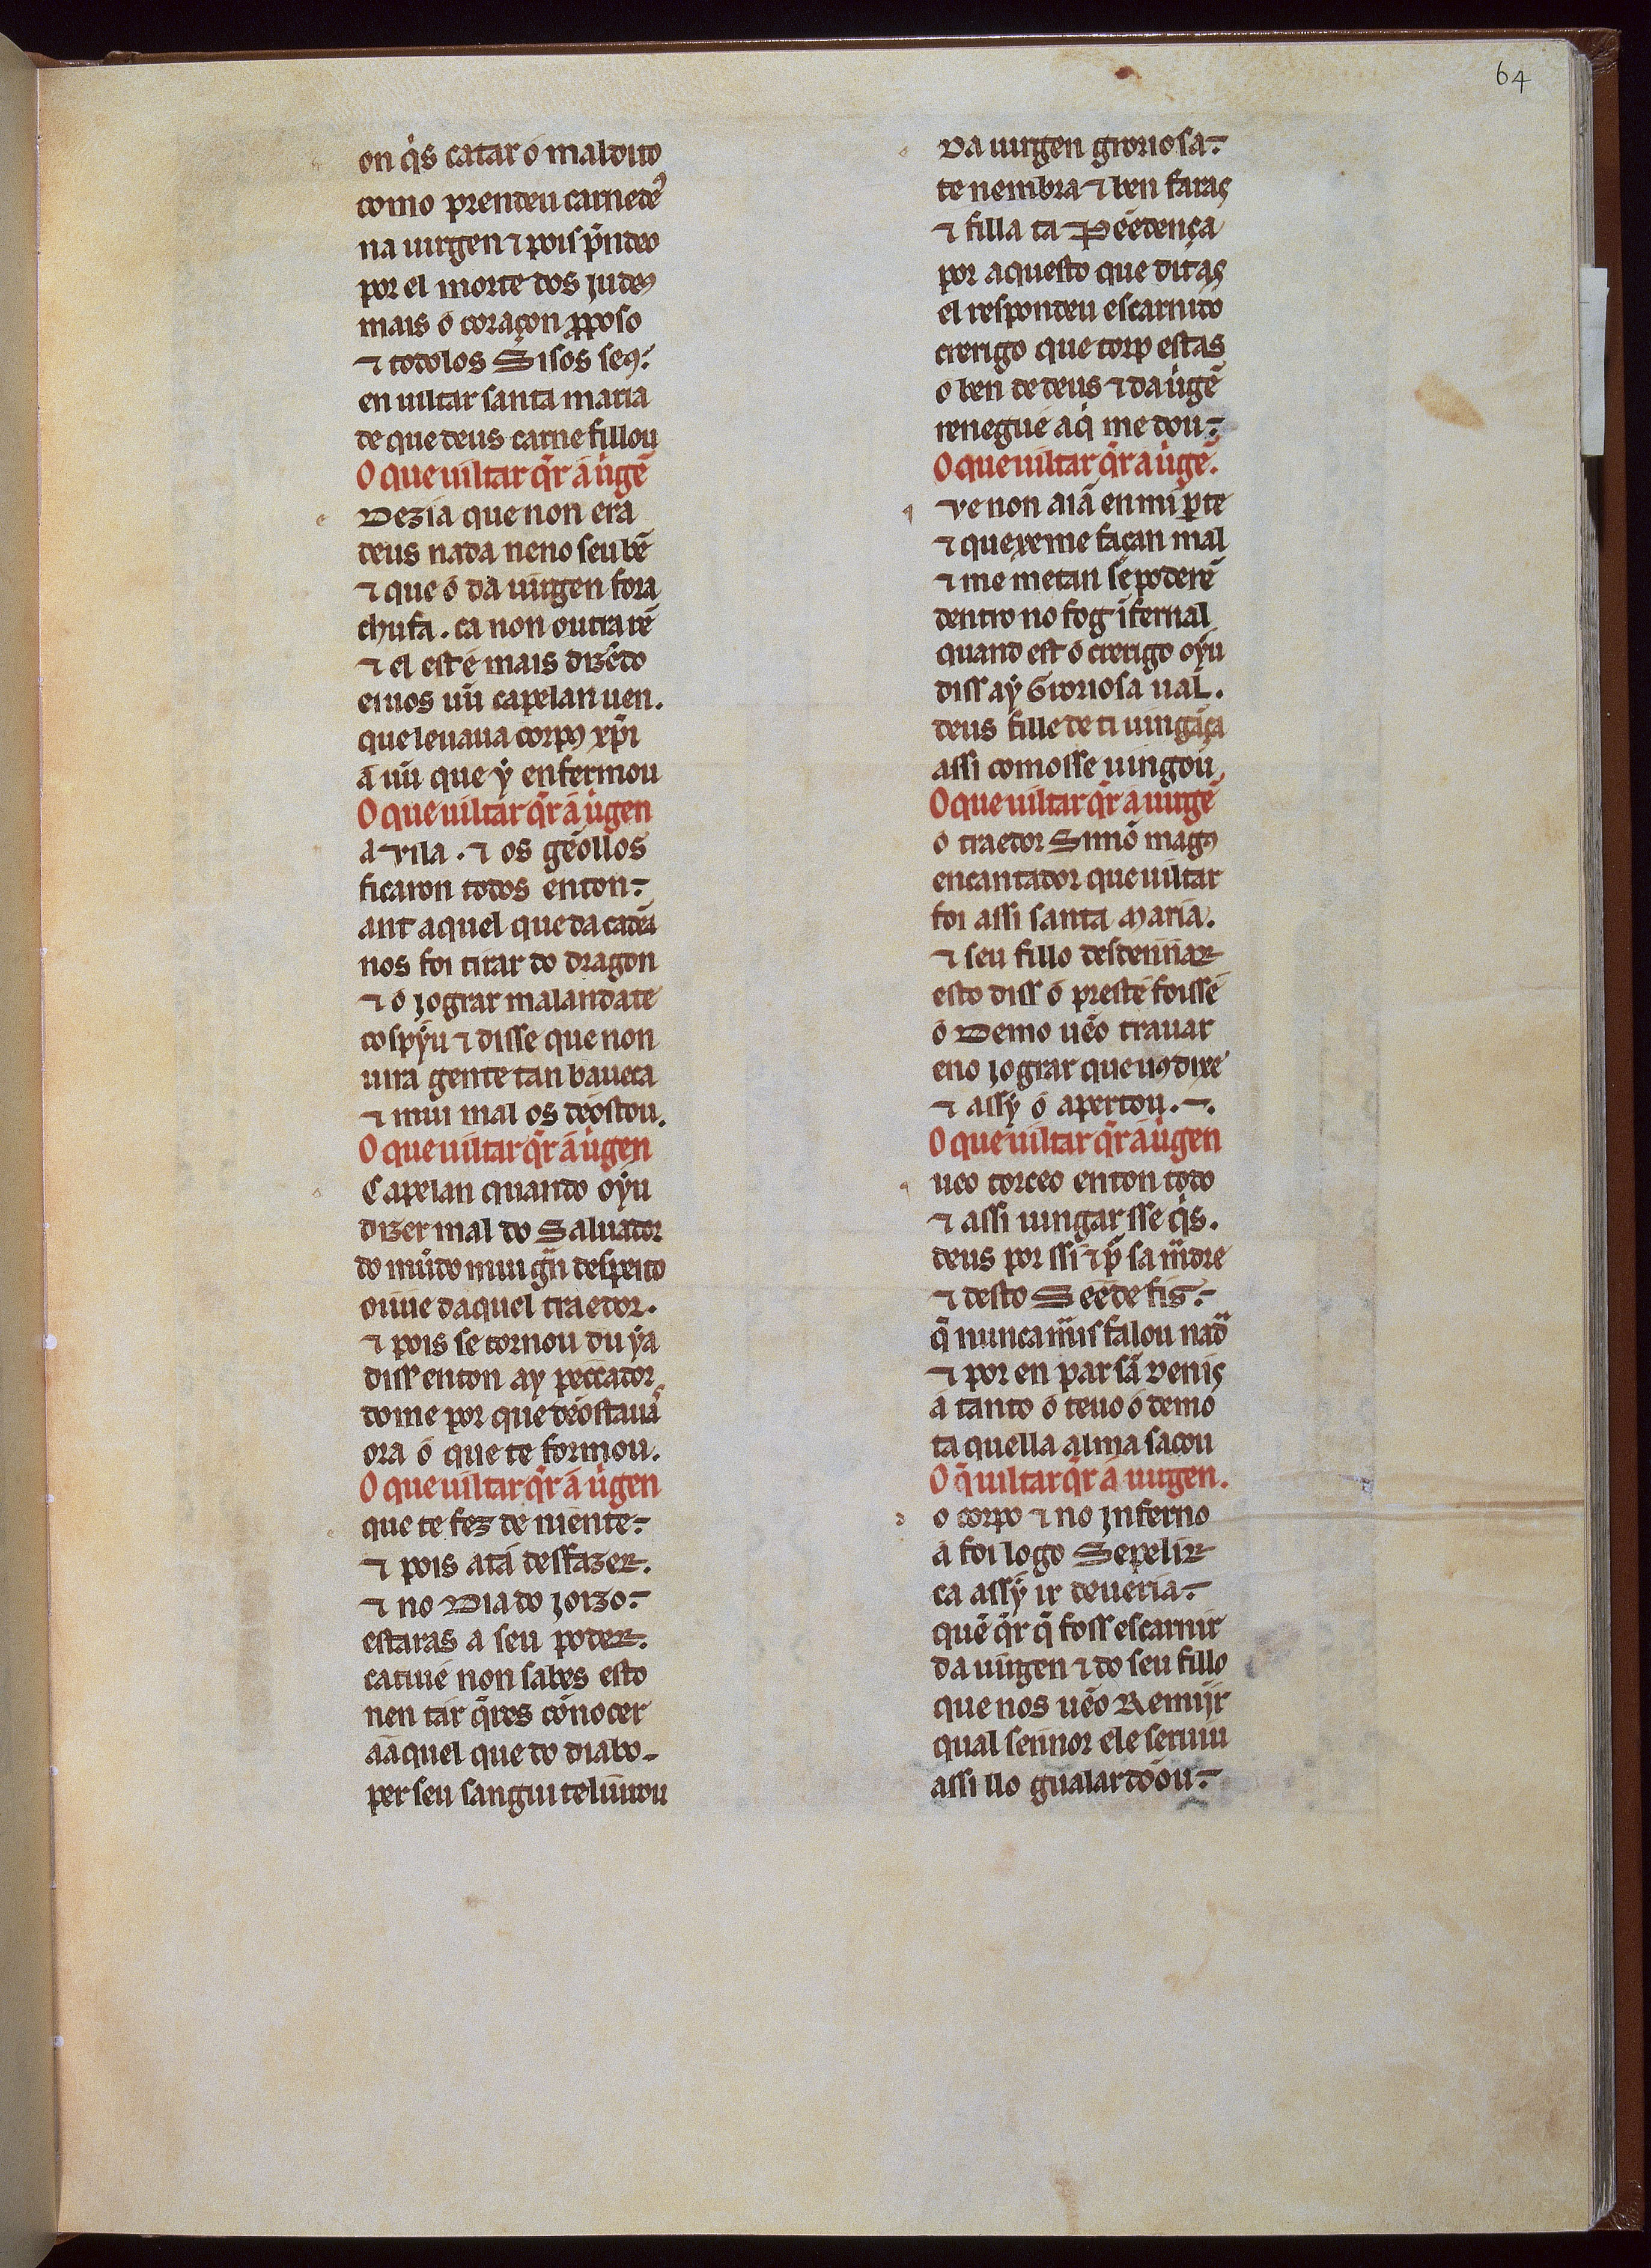 64
on q̇s catar ó maldito
como prendeu carne de9
na uirgen ⁊ pois p̃ndeo
por el morte dos judeꝰ
mais ó coraçon ꝓposo
⁊ todolos Sisos seꝰ.
en uiltar santa maria
de que deus carne fillou
O que uiltar q̃r á u̇gẽ
Dezia que non era
deus nada neno seu bẽ
⁊ que ó da uirgen fora
chufa. ca non outra rẽ
⁊ el est é mais dizẽdo
eiuos uũ capelan uen.
que leuaua corpꝰ xp̃i
á uũ que ẏ enfermou
O que uiltar q̃r á u̇gen
a vila. ⁊ os gẽollos
ficaron todos enton.
ant aquel que da cadẽa
nos foi tirar do dragon
⁊ ó jograr malandãte
cospẏu ⁊ disse que non
uira gente tan baueca
⁊ mui mal os dẽostou.
O que uiltar q̃r á u̇gen
Capelan quando oẏu
dizer mal do Saluador
do mũdo mui grã despeito
ouue daquel traedor.
⁊ pois se tornou du ẏa
diss enton ay peccador
dome por que dẽostauas
ora ó que te formou.
O que uiltar q̃r á u̇gen
que te fez de niente.
⁊ pois atá desfazer.
⁊ no Dia do joizo.
estaras a seu poder.
catiue non sabes esto
nen tar q̃res cõnocer
aaquel que do diabo
per seu sangui te liurou
Da uirgen groriosa.
te nembra ⁊ ben faras
⁊ filla ta Pẽedença
por aquesto que ditas
el respondeu escarnido
crerigo que torp estas
o ben de deus ⁊ da u̇gẽ
renegué aq̇ me dou.
O que uiltar q̃r a u̇gẽ.
ve non aiã en mi ꝑte
⁊ quexe me façan mal
⁊ me metan se poderẽ
dentro no fog ĩfernal
quand est ó crerigo oẏu
diss aẏ Groriosa ual.
deus fille de ti uingãça
assi comosse uingou
O que uiltar q̃r a uirgẽ
o traedor Simõ magꝰ
encantador que uiltar
foi assi santa Maria.
⁊ seu fillo desdennar
esto diss ó prest e foisse
ó Demo uẽo trauar
eno jograr que uꝰ dixe
⁊ assẏ ó apertou.
O que uiltar q̃r á u̇gen
ueo torceo enton todo
⁊ assi uingar sse q̇s.
deus por ssi ⁊ p̃ sa madre
⁊ desto Seede fis.
q̃ nunca mais falou nada
⁊ por en par sã Denis
á tanto ó teuo ó demo
ta quella alma sacou
O q̃ uiltar q̃r á uirgen.
o corpo ⁊ no jnferno
a foi logo Sepelir
ca assẏ ir deueria.
quẽ q̃r q̃ foss escarnir
da uirgen ⁊ do seu fillo
que nos uẽo Remijr
qual sennor ele seruiu
assi llo gualardõou.